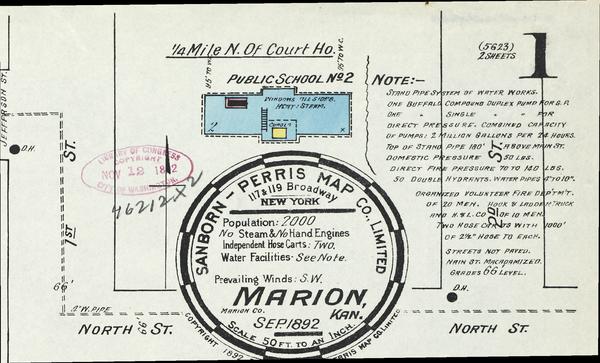 1/4 Mile N. Of Court Ho.
PUBLIC SCHOOL Nº2
WINDOWS
HEAT: STEAM.
CUPOLA
(5623)
2 SHEETS
1
NOTE:-
STAND PIPE SYSTEM OF WATER WORKS.
ONE BUFFALO COMPOUND DUPLEX PUMP FOR S.P.
ONE " SINGLE " " FOR
DIRECT PRESSURE. COMBINED CAPACITY
OF PUMPS: 2 MILLION GALLONS PER 24 HOURS.
TOP OF STAND PIPE 180' ABOVE MAIN ST.
DOMESTIC PRESSURE 50 LBS.
DIRECT FIRE PRESSURE 70 TO 150 LBS.
50 DOUBLE HYDRANTS. WATER PIPES 4" TO 10".
ORGANIZED VOLUNTEER FIRE DEP'M'T.
OF 20 MEN. HOOK & LADDER TRUCK
AND H. & L. CO. OF 10 MEN.
TWO HOSE CARTS WITH 1000'
OF 2½" HOSE TO EACH.
STREETS NOT PAVED.
MAIN ST. MACADAMIZED.
GRADES LEVEL.
JEFFERSON ST.
D.H.
1 ST. ST.
66'
LIBRARY OF CONGRESS
COPYRIGHT
NOV 12 1892
CITY OF WASHINGTON
46212x2
SANBORN-PERRIS MAP CO., LIMITED
117 & 119 Broadway
NEW YORK
Population: 2000
No Steam & No Hand Engines
Independent Hose Carts: Two.
Water Facilities - See Note.
Prevailing Winds: S.W.
MARION,
MARION CO. KAN.
SEP. 1892
SCALE 50 FT. TO AN INCH.
COPYRIGHT 1892 PERRIS MAP CO. LIMITED
2D ST.
66'
D.H.
W. PIPE
NORTH 66' ST.
NORTH ST.